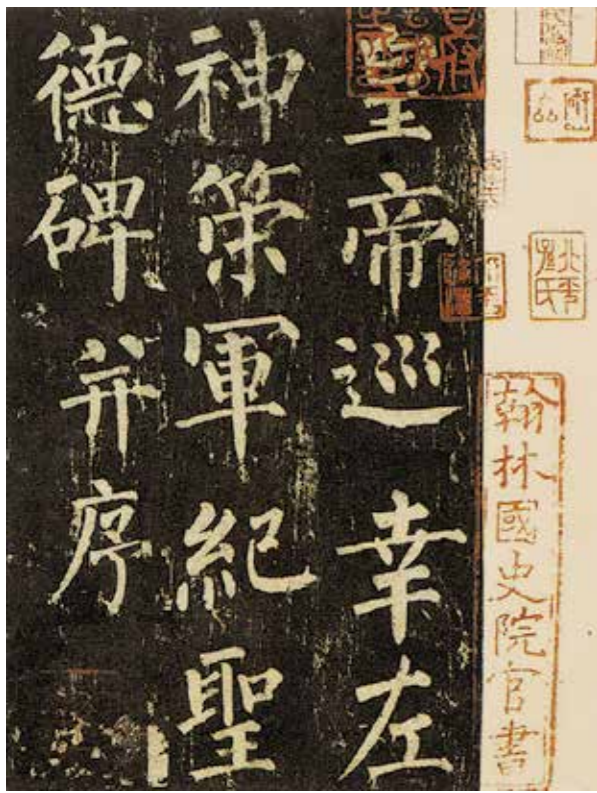 翰林國史院官書
北平劉氏
皇帝巡幸左
神策軍紀聖
德碑并序